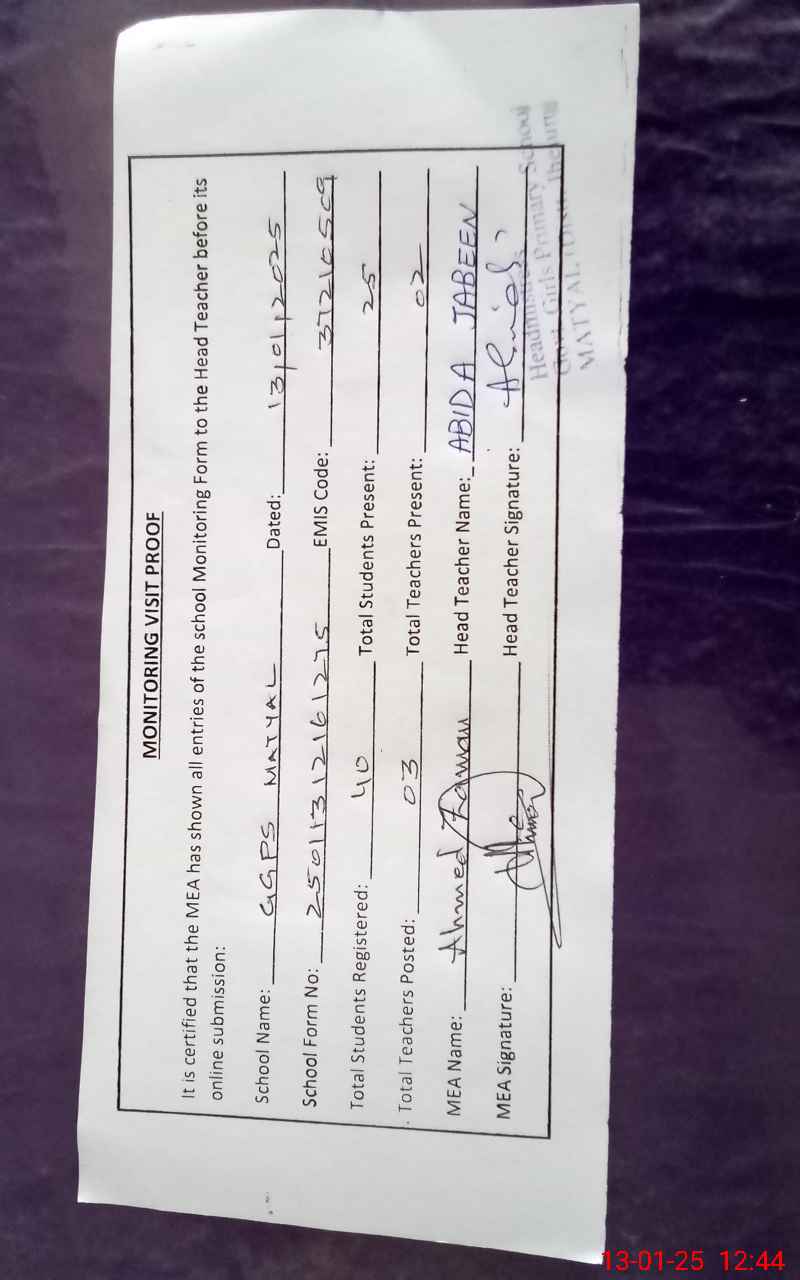 MONITORING VISIT PROOF
It is certified that the MEA has shown all entries of the school Monitoring Form to the Head Teacher before its
online submission:
School Name: GGPS MATYAL Dated: 13/01/2025
School Form No: 25011312161275 EMIS Code: 37210509
Total Students Registered: 40 Total Students Present: 25
Total Teachers Posted: 03 Total Teachers Present: 02
MEA Name: Ahmed Zaman Head Teacher Name: ABIDA JABEEN
MEA Signature: Head Teacher Signature:
Headmistress
Govt. Girls Primary School
MATYAL
13-01-25 12:44